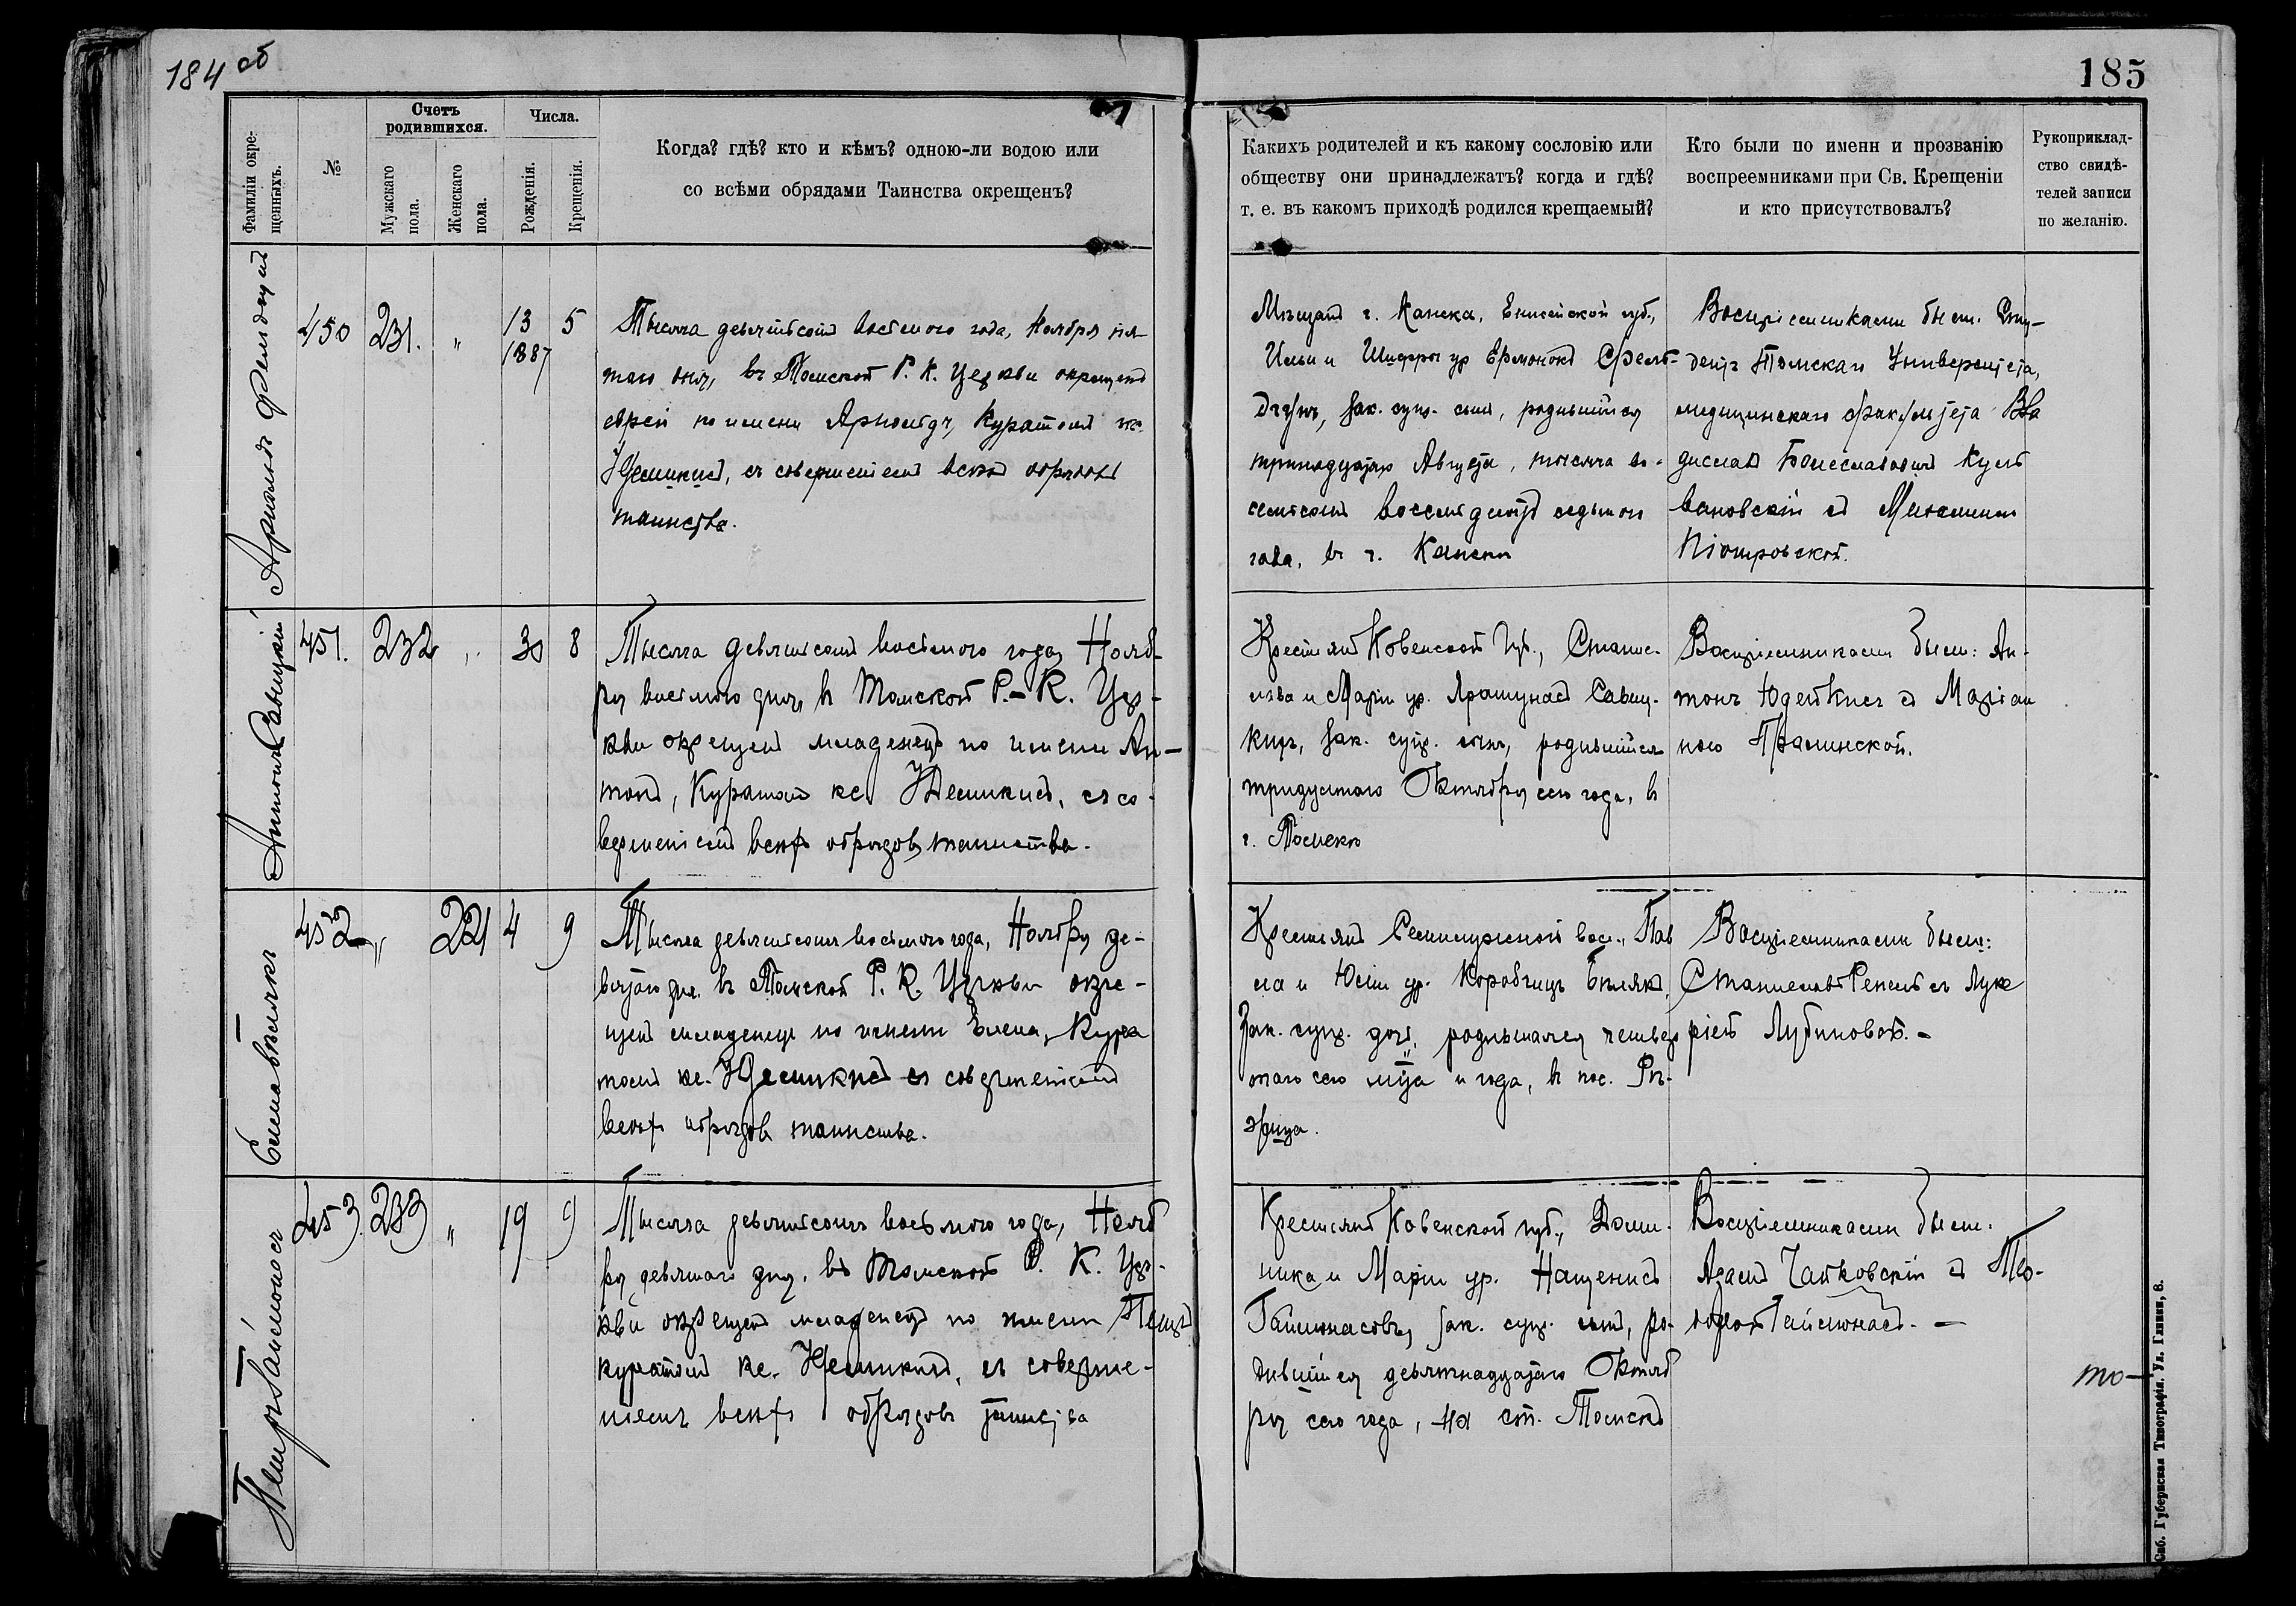 184 об
185
Фамиліи окре-
щенныхъ.
№
Счетъ
родившихся.
Мужскаго
пола.
Женскаго
пола.
Числа.
Рожденія.
Крещенія.
Когда? гдѣ? кто и кѣмъ? одною-ли водою или
со всѣми обрядами Таинства окрещенъ?
Какихъ родителей и къ какому сословію или
обществу они принадлежатъ? когда и гдѣ?
т. е. въ какомъ приходѣ родился крещаемый?
Кто были по имени и прозванію
воспреемниками при Св. Крещеніи
и кто присутствовалъ?
Рукоприклад-
ство свидѣ-
телей записи
по желанію.
Арнольдъ
450 231. " 13 1887 5
Тысяча девятьсотъ восьмого года, Ноября пя-
таго дня, въ Томской Р. К. Церкви окрещенъ
еврей по имени Арнольдъ, Куратомъ кс.
съ совершеніемъ всѣхъ обрядовъ
таинства.
Мѣщанъ г. Канска, Енисейской губ.,
Ильи и ур
зак. супр. сынъ, родившійся
тринадцатаго Августа, тысяча во-
семьсотъ восемьдесятъ седьмого
года, въ г. Канскѣ
Воспріемниками были: Сту-
дентъ Томскаго Университета,
медицинскаго факультета Вла
диславъ Болеславовичъ Куль
вановскій съ
Піотровской.
Антонъ Савицкій
451. 232 " 30 8
Тысяча девятьсотъ восьмого года, Нояб-
ря восьмого дня, въ Томской Р.-К. Цер-
кви окрещенъ младенецъ по имени Ан-
тонъ, Куратомъ кс. съ со-
вершеніемъ всѣхъ обрядовъ таинства.
Крестьянъ Ковенской губ., Станис-
лава и Маріи ур. Савиц-
кихъ, зак. супр. сынъ, родившійся
тридцатаго Октября сего года, въ
г. Томскѣ
Воспріемниками были: Ан-
тонъ Юдейкисъ съ Маріан
ною
Елена Бѣлякъ
452 " 221 4 9
Тысяча девятьсотъ восьмого года, Ноября де-
вятаго дня въ Томской Р. К. Церкви окре-
щенъ младенецъ по имени Елена, Кура
томъ кс. съ совершеніемъ
всѣхъ обрядовъ таинства.
Крестьянъ Семилужной вол., Пав
ла и Юліи ур. Бѣлякъ,
зак. супр. дочь, родившаяся четвер
таго сего мѣца и года, въ пос.
Воспріемниками были:
Станиславъ съ Луке
ріей Лубиновой. -
Петръ Гаймонасъ
453. 233 " 19 9
Тысяча девятьсотъ восьмого года, Нояб
ря девятаго дня, въ Томской Р. К. Цер-
кви окрещенъ младенецъ по имени Петръ
куратомъ кс. съ соверше-
ніемъ всѣхъ обрядовъ таинства
Крестьянъ Ковенской губ., Доми-
ника и Маріи ур.
зак. супр. сынъ, ро-
дившійся девятнадцатаго Октяб
ря сего года, на ст. Томскъ
Воспріемниками были:
Адамъ Чайковскій съ Тео-
то-
Спб. Губернская Типографія. Ул. Глинки, 8.